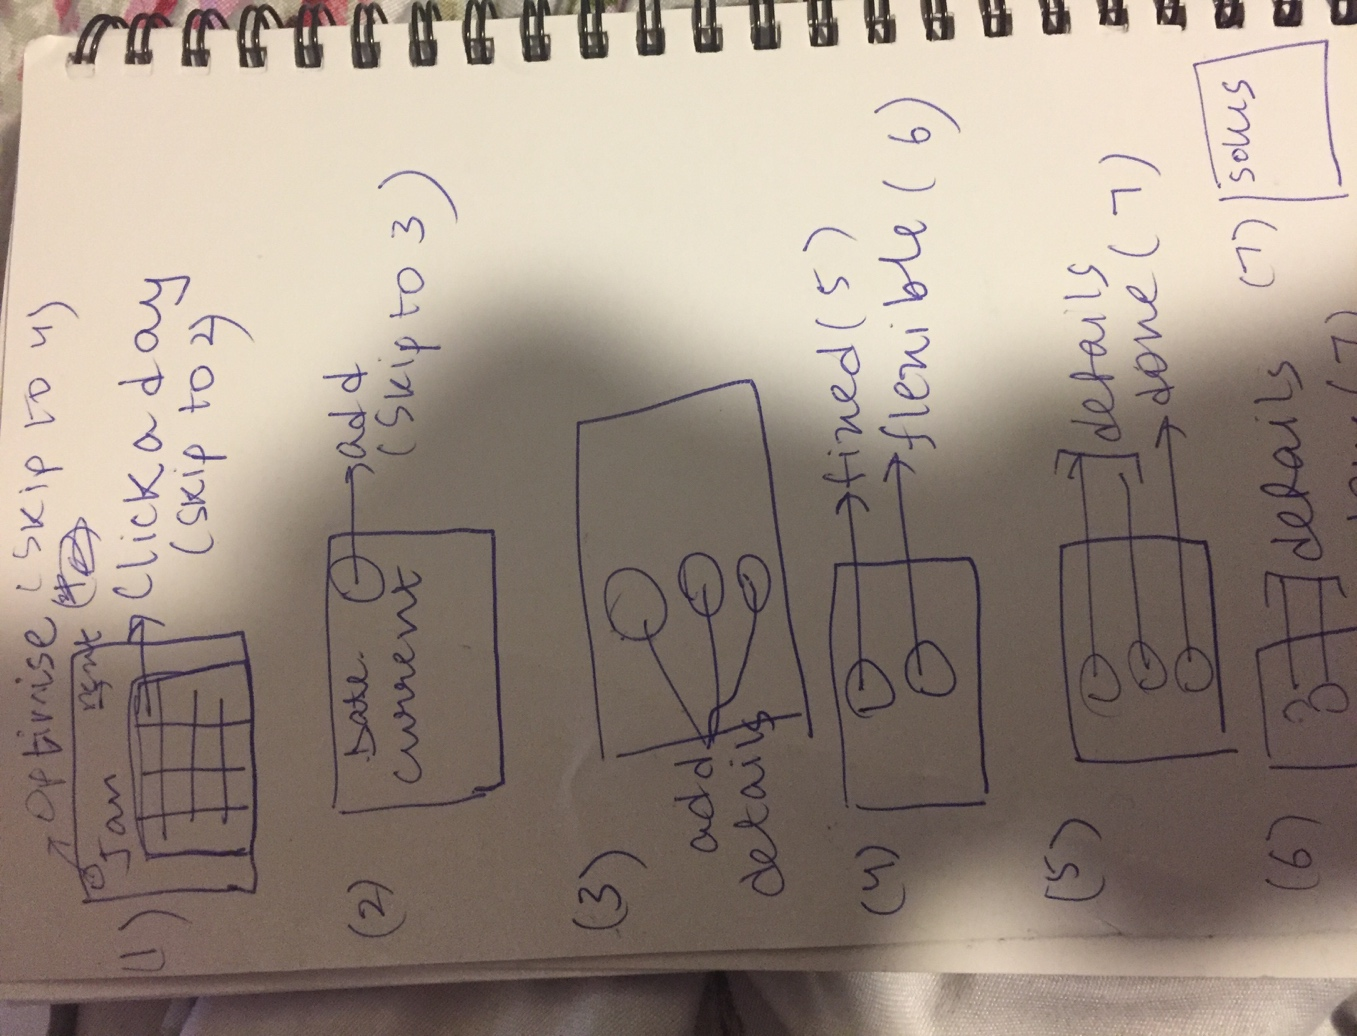 optimise (skip to 4)
(1)
Jan
Click a day
(skip to 2)
(2)
Date
current
add
(skip to 3)
(3)
add
details
(4)
fixed (5)
flexible (6)
(5)
details
done (7)
(6)
details
(7)